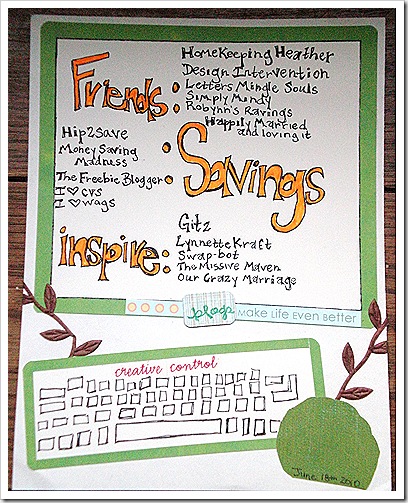 Friends:
HomeKeeping Heather
Design Intervention
Letters Mingle Souls
Simply Mindy
Robynn's Ravings
Happily Married
and loving it
Hip2save
Money Saving
Madness
The Freebie Blogger
I ♡ CVS
I ♡ wags
:Savings
inspire:
Gitz
Lynnette Kraft
Swap-bot
The Missive Maven
Our Crazy Marriage
blogs Make Life Even Better
creative control
June 18th 2010